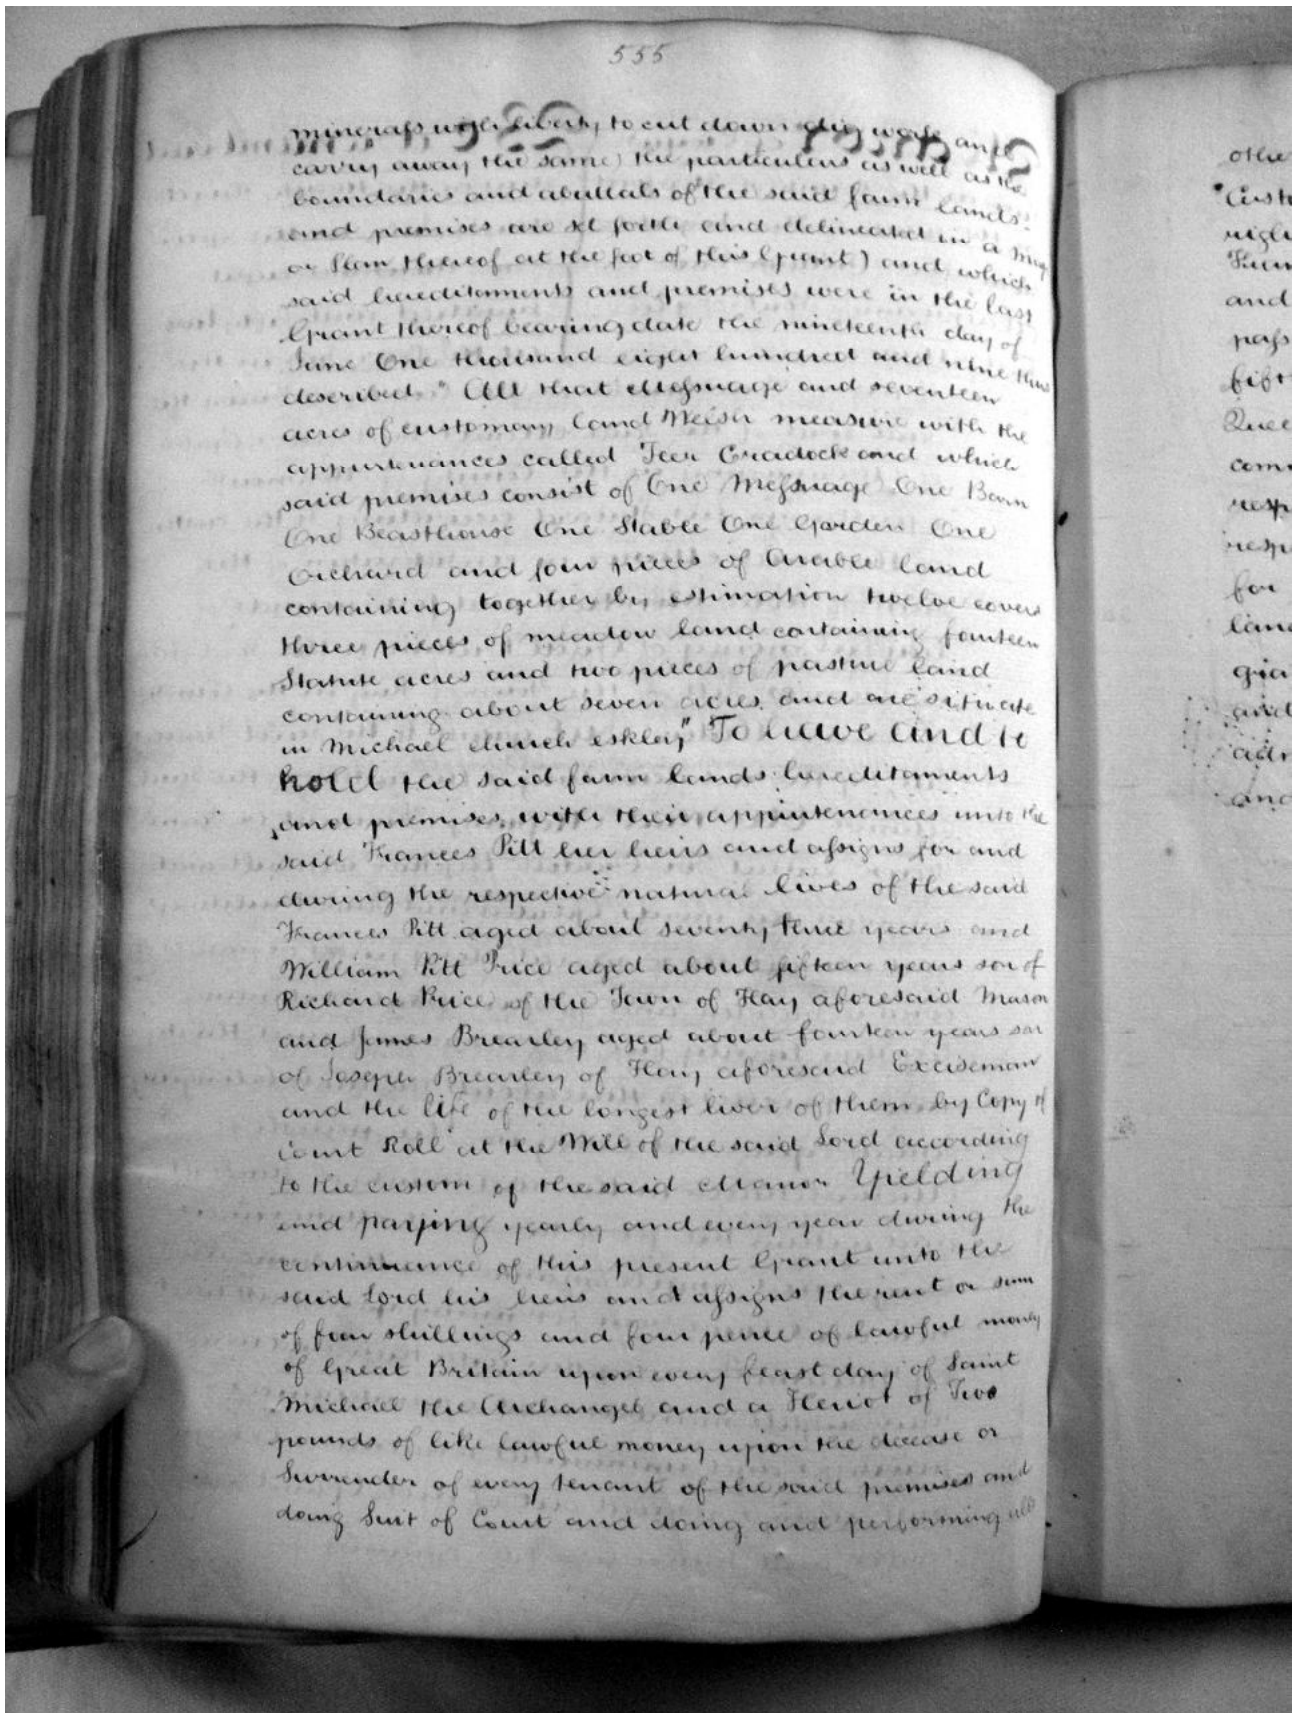 555
minerals with liberty to cut down dig work and
carry away the same) the particulars as well as the
boundaries and abuttals of the said farm lands
and premises are set forth and delineated in a Map
or Plan thereof at the foot of this Grant) and which
said hereditaments and premises were in the last
Grant thereof bearing date the nineteenth day of
June One thousand eight hundred and nine thus
described " All that Messuage and seventeen
acres of customary land Welsh measure with the
appurtenances called Teer Cradock and which
said premises consist of One Messuage One Barn
One Beasthouse One Stable One Garden One
Orchard and four pieces of Arable land
containing together by estimation twelve covers
three pieces of meadow land containing fourteen
Statute acres and two pieces of pasture land
containing about seven acres and are situate
in Michael church eskley" To have and to
hold the said farm lands hereditaments
and premises with their appurtenances unto the
said Frances Pitt her heirs and assigns for and
during the respective natural lives of the said
Frances Pitt aged about seventy three years and
William Pitt Price aged about fifteen years son of
Richard Price of the Town of Hay aforesaid Mason
and James Brearley aged about fourteen years son
of Joseph Brearley of Hay aforesaid Exciseman
and the life of the longest liver of them by Copy of
Court Roll at the Will of the said Lord according
to the custom of the said Manor Yielding
and paying yearly and every year during the
continuance of this present Grant unto the
said Lord his heirs and assigns the rent or sum
of four shillings and four pence of lawful money
of Great Britain upon every feast day of Saint
Michael the Archangel and a Heriot of Two
pounds of like lawful money upon the decease or
Surrender of every tenant of the said premises and
doing Suit of Court and doing and performing all
othe
Custo
righ
and
pass
fift
Quee
com
resp
resp
for
land
gra
and
adm
and